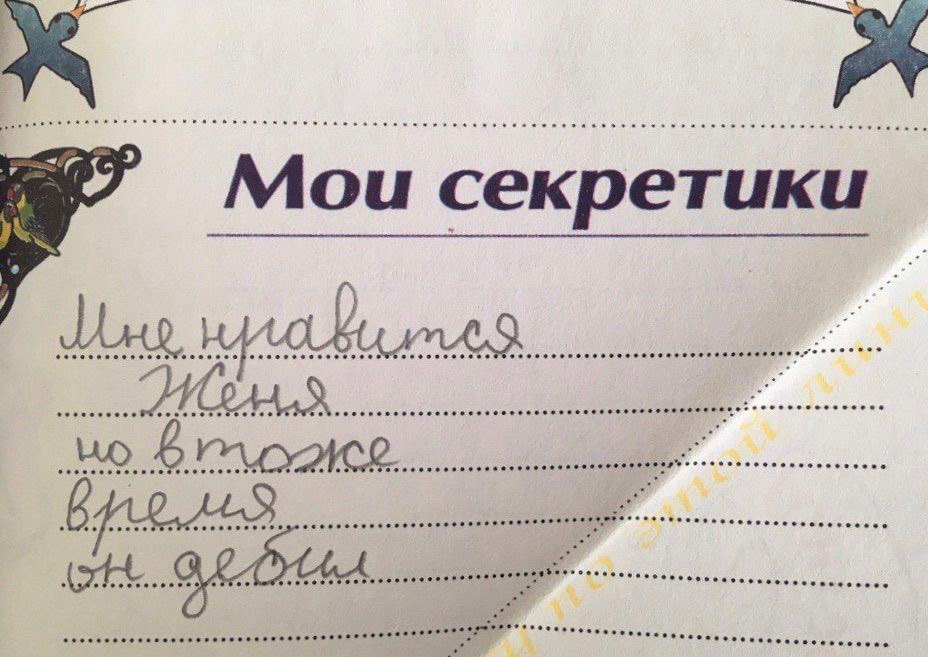 Мои секретики
Мне нравится
Женя
но в тоже
время
он дебил
по этой лини